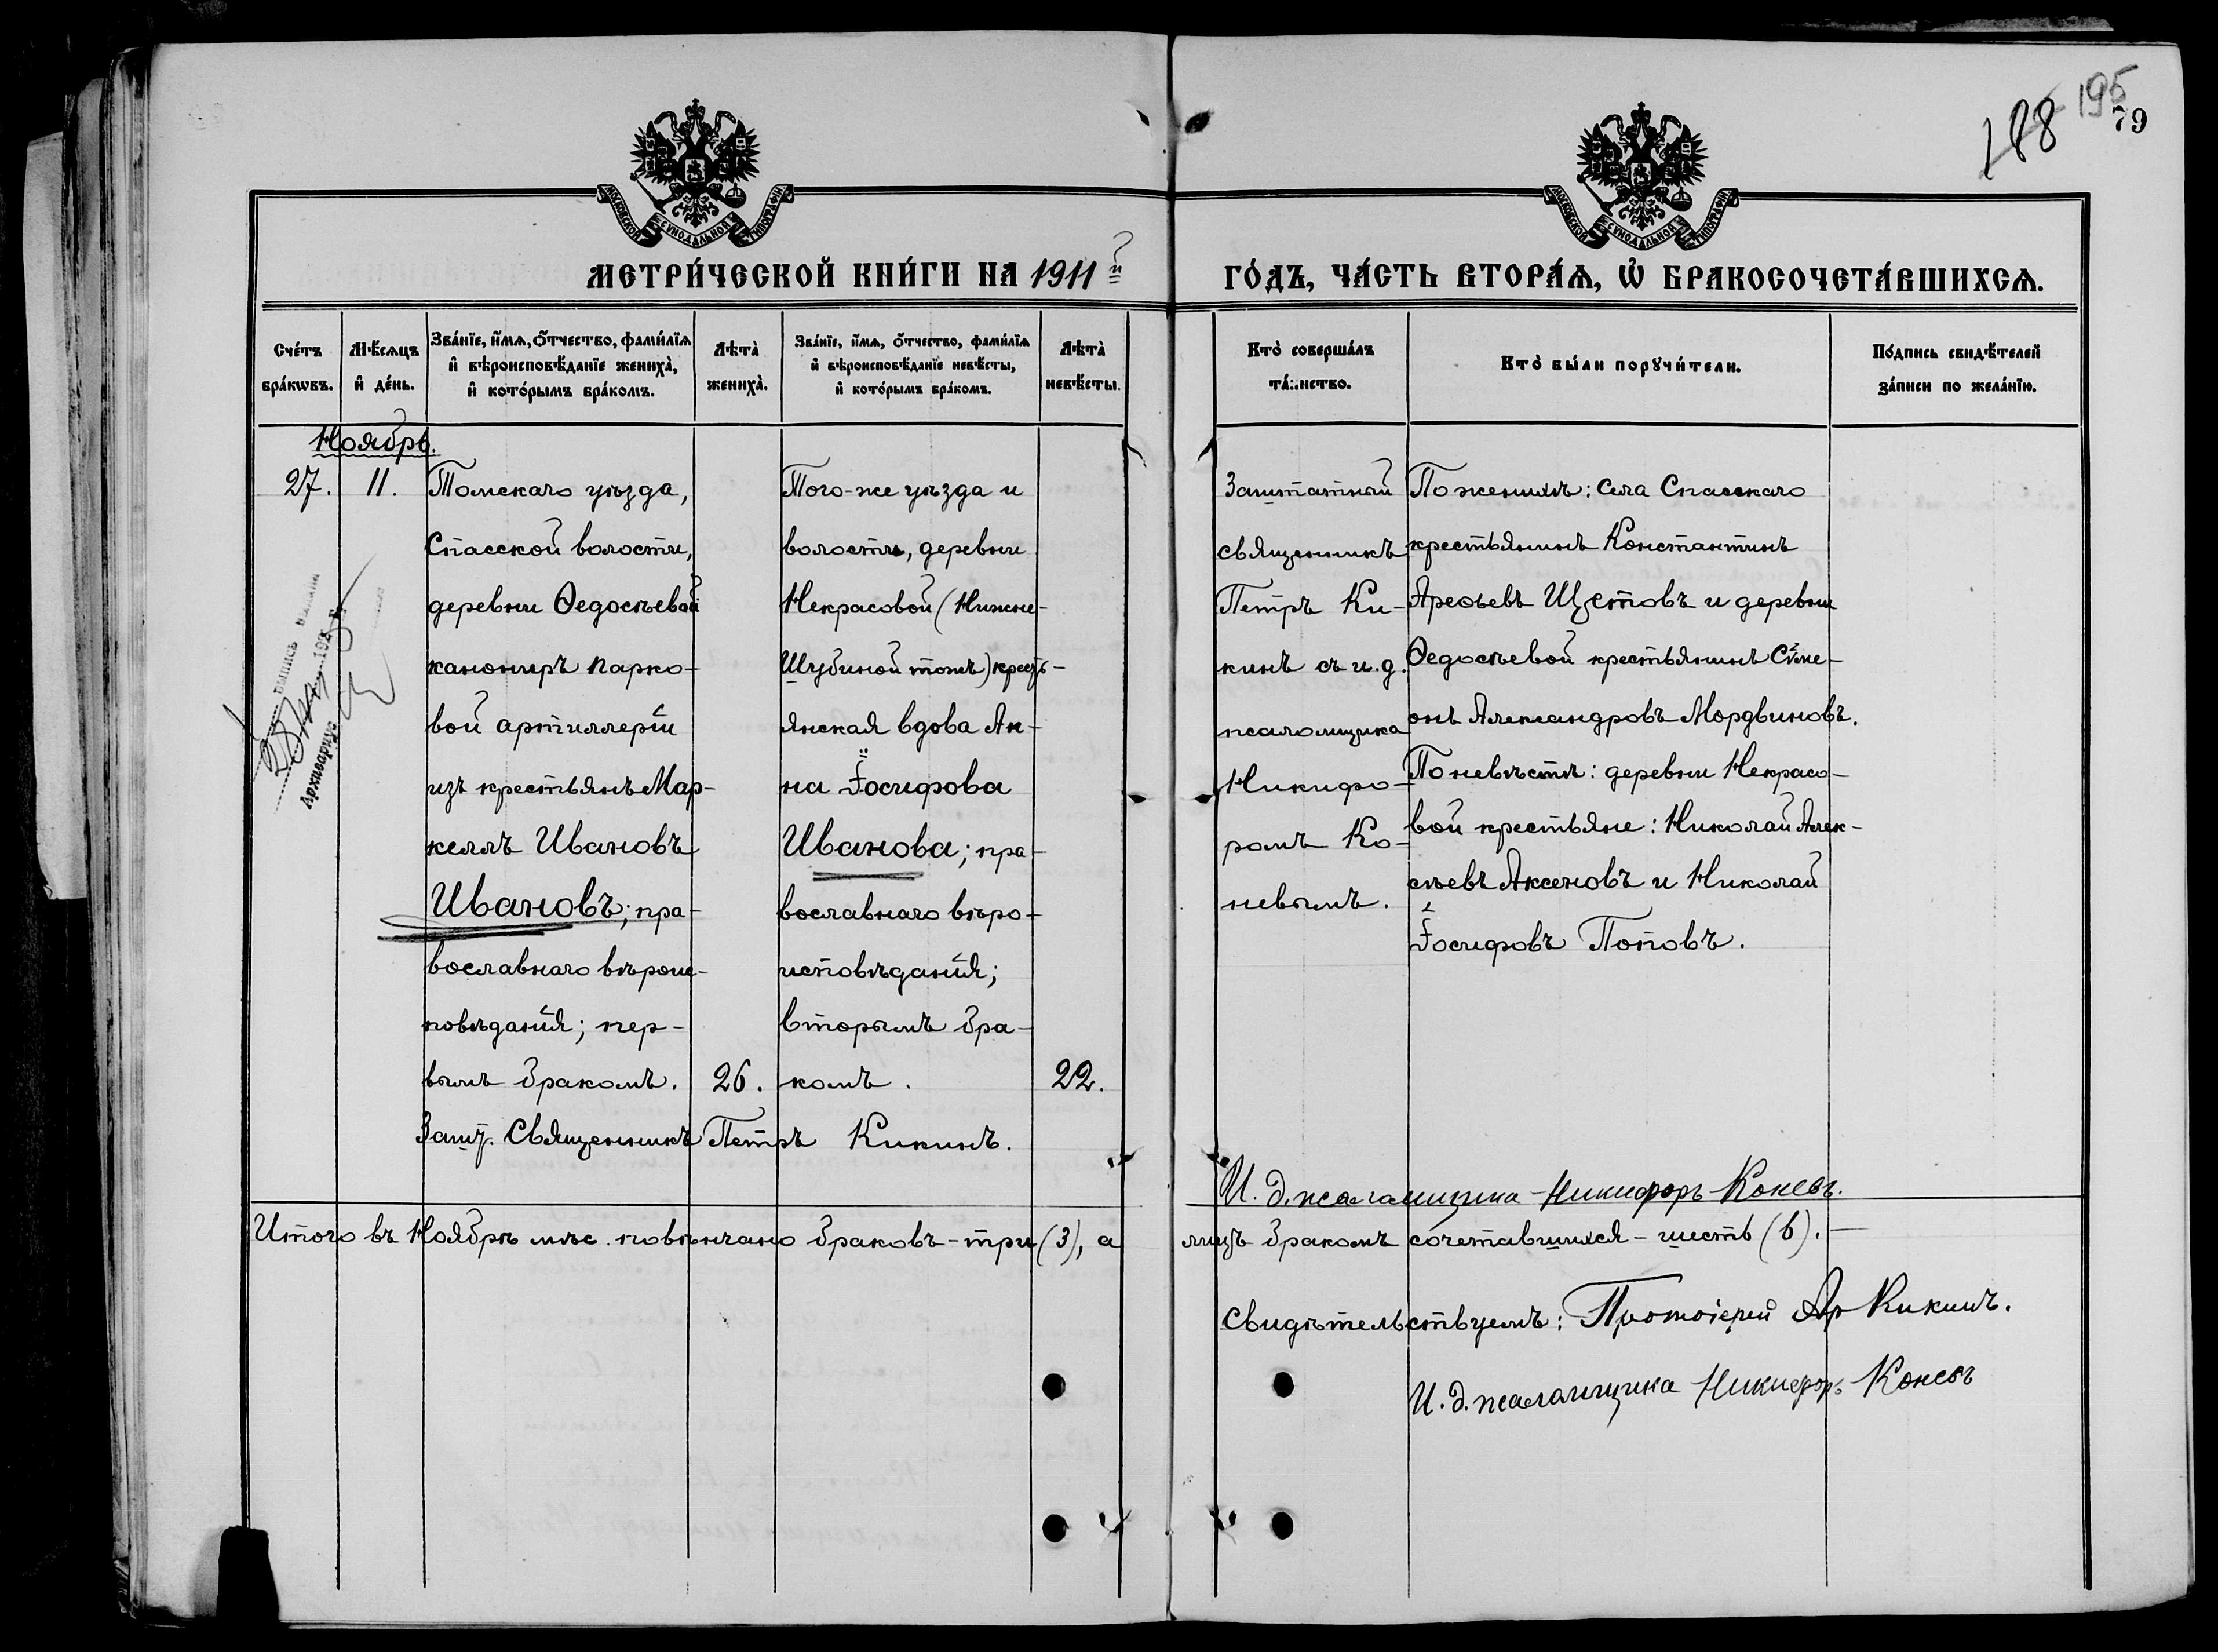 188 195
79
МОСКОВСКОЙ СѴНОДАЛЬНОЙ ТИПОГРАФІИ
МОСКОВСКОЙ СѴНОДАЛЬНОЙ ТИПОГРАФІИ
МЕТРИ́ЧЕСКОЙ КНИ́ГИ НА 1911й
ГО́ДЪ, ЧА́СТЬ ВТОРА́Ѧ, Ѽ БРАКОСОЧЕТА́ВШИХСѦ.
Сче́тъ
бра́кѡвъ.
Мѣ́сѧцъ
и҆ де́нь.
Зва́нїе, и҆́мѧ, ѻ҆́тчество, фами́лїѧ
и҆ вѣроисповѣ́данїе жениха̀,
и҆ кото́рымъ бра́комъ.
Лѣта̀
жениха̀.
Зва́нїе, и҆́мѧ, ѻ҆́тчество, фами́лїѧ
и҆ вѣроисповѣ́данїе невѣ́сты,
и҆ кото́рымъ бра́комъ.
Лѣта̀
невѣ́сты.
Кто̀ соверша́лъ
та́инство.
Кто̀ бы́ли порꙋчи́тели.
По́дпись свидѣ́телей
за́писи по жела́нїю.
Ноябрь.
27.
11.
Томскаго уѣзда,
Спасской волости,
деревни Ѳедосѣевой
канониръ парко-
вой артиллеріи
изъ крестьянъ Мар-
келлъ Ивановъ
Ивановъ; пра-
вославнаго вѣроис-
повѣданія; пер-
вымъ бракомъ.
26.
Того-же уѣзда и
волости, деревни
Некрасовой (Нижне-
Шубиной тожъ) кресть-
янская вдова Ан-
на Іосифова
Иванова; пра-
вославнаго вѣро-
исповѣданія;
вторымъ бра-
комъ.
22.
Зашт. Священникъ Петръ Кикинъ.
Заштатный
священникъ
Петръ Ки-
кинъ съ и. д.
псаломщика
Никифо-
ромъ Ко-
невымъ.
По женихѣ: села Спасскаго
крестьянинъ Константинъ
Арефьевъ Щетовъ и деревни
Ѳедосѣевой крестьянинъ Симе-
онъ Александровъ Мордвиновъ.
По невѣстѣ: деревни Некрасо-
вой крестьяне: Николай Алек-
сѣевъ Аксеновъ и Николай
Іосифовъ Поповъ.
И. д. псаломщика Никифоръ Коневъ.
Итого въ Ноябрѣ мѣс. повѣнчано браковъ - три (3), а лицъ бракомъ сочетавшихся - шесть (6).
Свидѣтельствуемъ: Протоіерей Ар Кикинъ.
И. д. псаломщика Никифоръ Коневъ
Архивариус